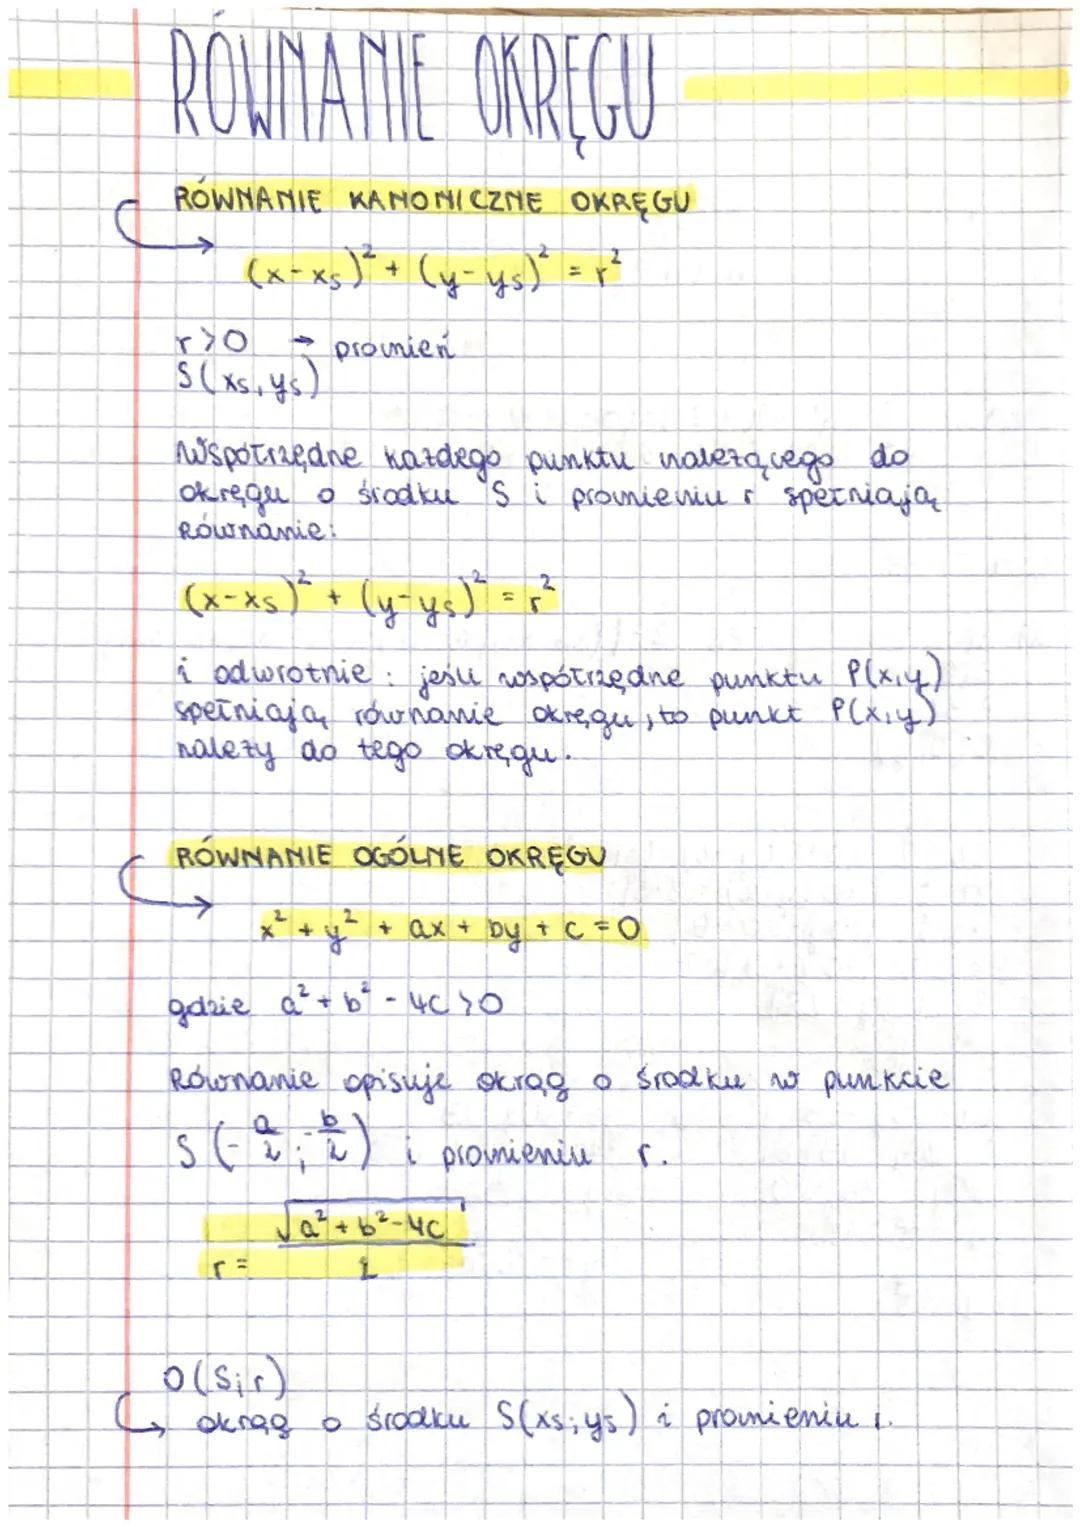 RÓWNANIE OKRĘGU
RÓWNANIE KANONICZNE OKRĘGU
(x-xs)² + (y-ys)² = r²
r>0 → promień
S(xs, ys)
Współrzędne każdego punktu należącego do
okręgu o środku S i promieniu r spełniają
równanie:
(x-xs)² + (y-ys)² = r²
i odwrotnie: jeśli współrzędne punktu P(x,y)
spełniają równanie okręgu, to punkt P(x,y)
należy do tego okręgu.
RÓWNANIE OGÓLNE OKRĘGU
x² + y² + ax + by + c = 0
gdzie a² + b² - 4c > 0
Równanie opisuje okrąg o środku w punkcie
S (-a/2; -b/2) i promieniu r.
r = √(a² + b² - 4c) / 2
O(S; r)
okrąg o środku S(xs; ys) i promieniu r.